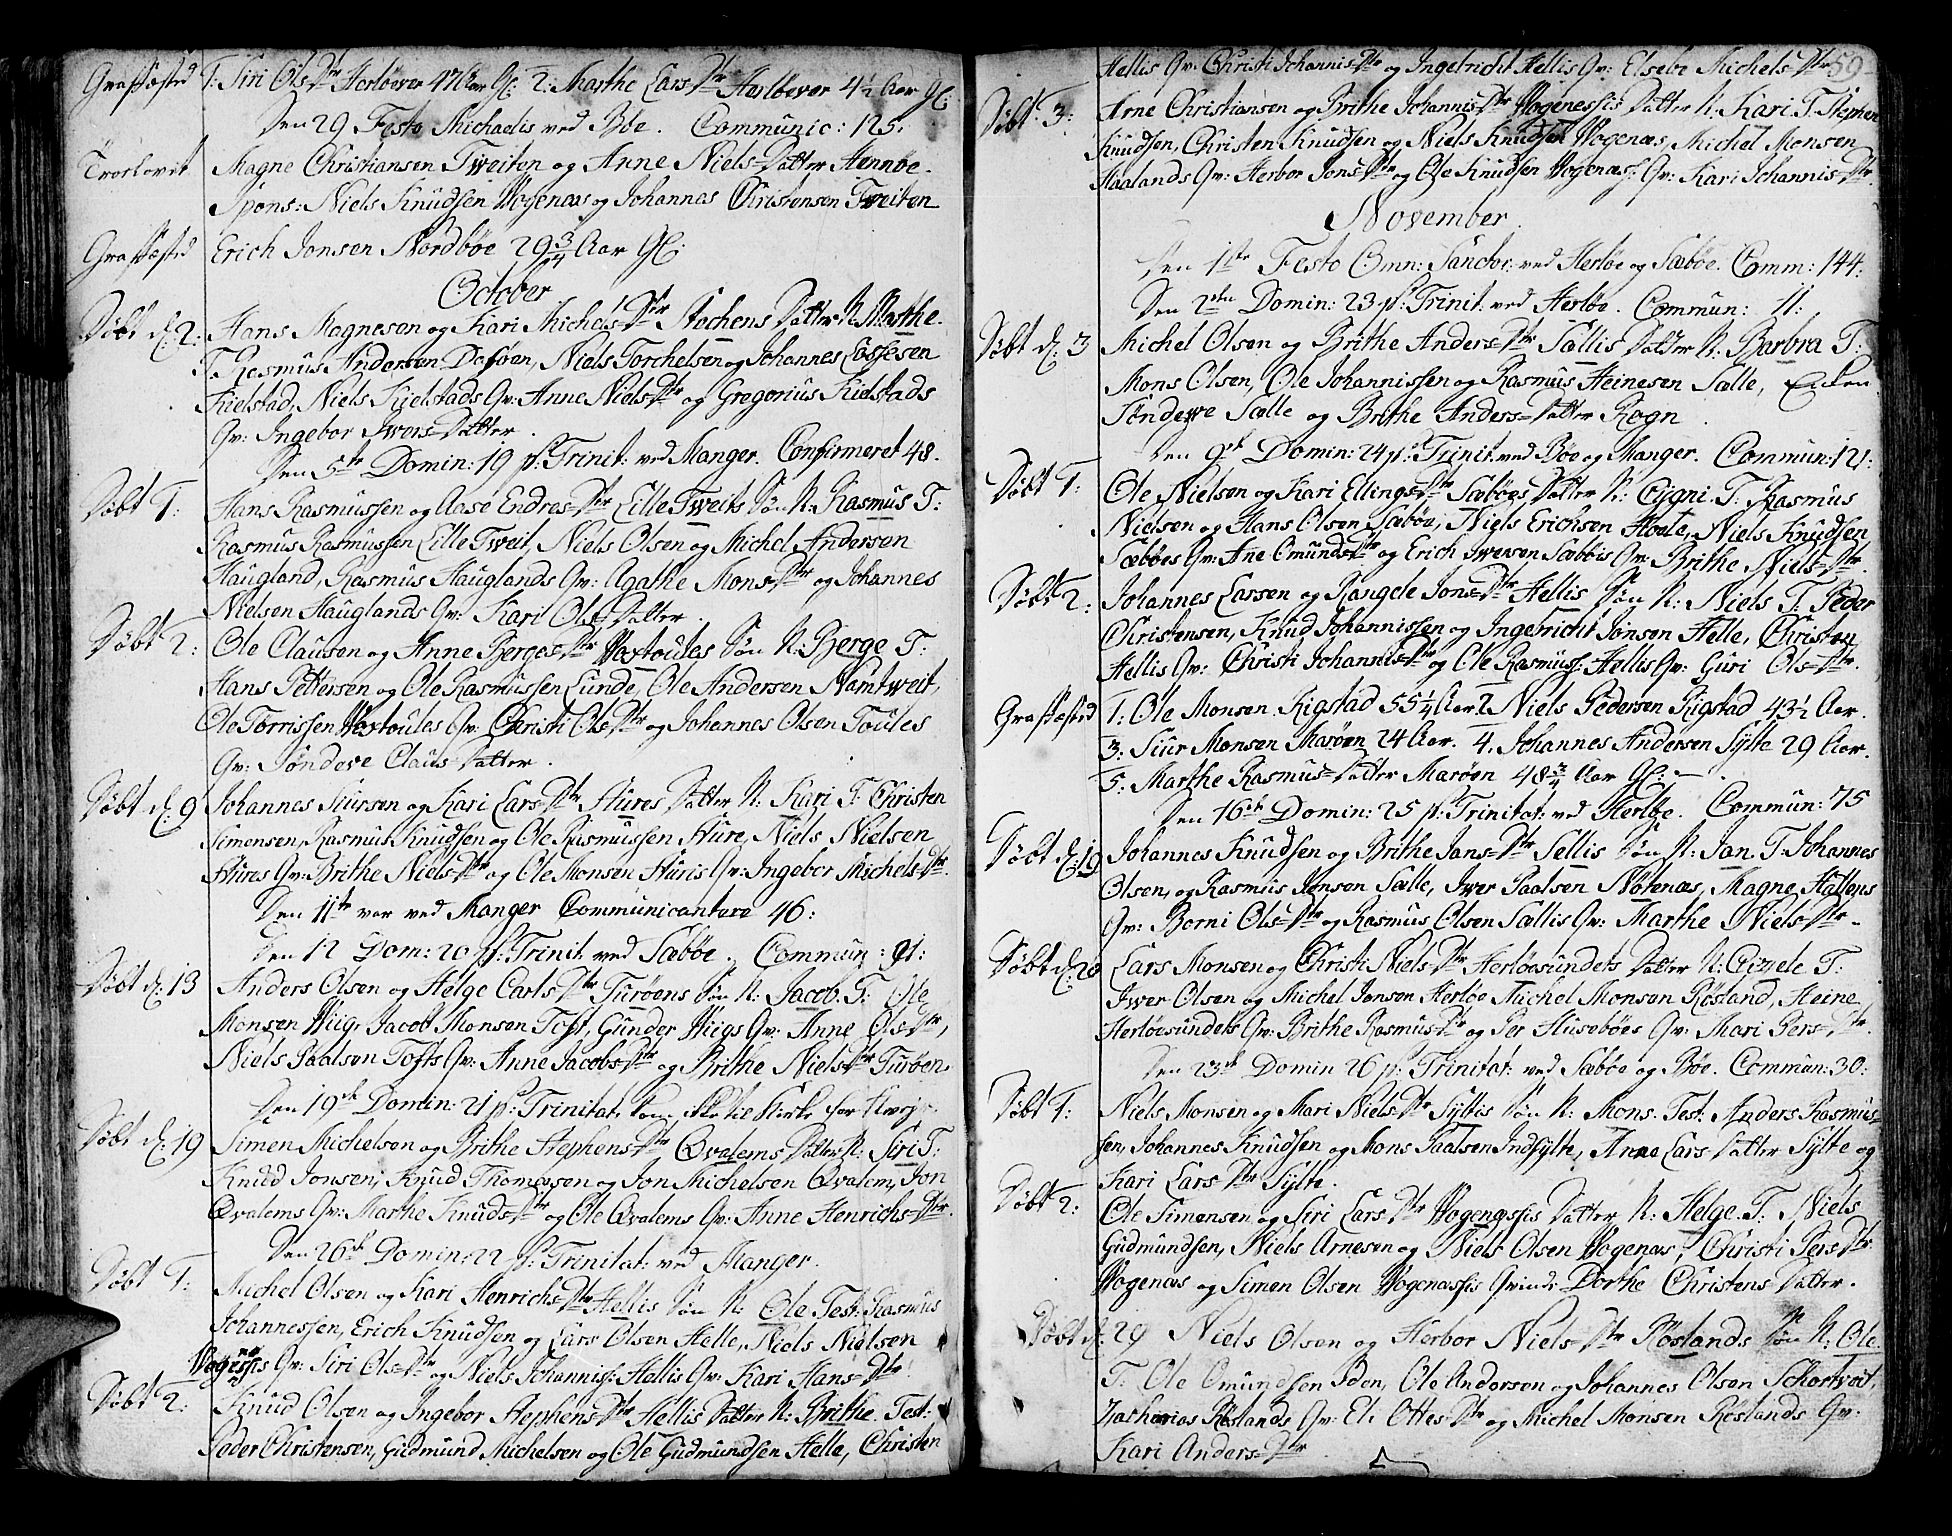 Graffæsted 1: Siri Ols Dtr Herløever 47 Aar Gl: 2: Marthe Lars Dtr Herløever 4 1/2 Aar Gl:
Den 29 Festo Michaelis ved Bøe. Communic: 125.
Troelovit Magne Christiansen Tweiten og Anne Niels Datter Hennøe.
Spons: Niels Knudsen Wogenæs og Johannes Christensen Tweiten
Graffæsted Erich Jonsen Nordbøe 29 3/4 Aar Gl:
October
Døbt d: 2: Hans Magnesen og Kari Michels Dtr Stochens Datter N. Marthe.
T. Rasmus Andersen Daføen, Niels Torchelsen og Johannes Lassesen
Kielstad, Niels Kielstads Qv: Anne Niels Dtr og Gregorius Kielstads
Qv: Ingebor Iwers Datter.
Den 5te Domin: 19 p: Trinit: ved Manger. Confirmeret 48.
Døbt 1: Hans Rasmussen og Aase Endres Dtr Lille Tweits Søn N: Rasmus T:
Rasmus Rasmussen Lille Tweit, Niels Olsen og Michel Andersen
Haugland, Rasmus Hauglands Qv: Agathe Mons Dtr og Johannes
Nielsen Hauglands Qv: Kari Ols Datter.
Døbt 2: Ole Clausen og Anne Berges Dtr Woxtoules Søn N: Berge T:
Hans Pettersen og Ole Rasmussen Lunde, Ole Andersen Namtweit,
Ole Tørrissen Woxtoules Qv: Christi Ols Dtr og Johannes Olsen Toules
Qv: Søndeve Claus Datter.
Døbt d: 9 Johannes Siursen og Kari Lars Dtr Hures Datter N: Kari T: Christen
Simensen, Rasmus Knudsen og Ole Rasmussen Hure, Niels Nielsen
Hures Qv: Brithe Niels Dtr og Ole Monsen Huris Qv: Ingebor Michels Dtr.
Den 11te var ved Manger Communicantere 46:
Den 12 Dom: 20 p: Trinit: ved Sæbøe. Commun: 91:
Døbt d: 13 Anders Olsen og Helge Carls Dtr Turøens Søn N: Jacob. T: Ole
Monsen Wiig, Jacob Monsen Toft, Gunder Wiigs Qv: Anne Ols Dtr,
Niels Paalsen Tofts Qv: Anne Jacobs Dtr og Brithe Niels Dtr Turøen.
Den 19de Domin: 21 p: Trinitat: kom ikke til Kirke for Uveir.
Døbt d: 19 Simen Michelsen og Brithe Stephens Dtr Qvalems Datter N: Siri T:
Knud Jonsen, Knud Thomæsen og Jon Michelsen Qvalem, Jon
Qvalems Qv: Marthe Knuds Dtr og Ole Qvalems Qv: Anne Henrichs Dtr.
Den 26de Domin: 22 p: Trinitat: ved Manger.
Døbt 1: Michel Olsen og Kari Henrichs Dtr Hellis Søn N: Ole Test: Rasmus
Johannessen, Erich Knudsen og Lars Olsen Helle, Niels Nielsen
Wogenæssis Qv: Siri Ols Dtr og Niels Johanniss: Hellis Qv: Kari Hans Dtr.
Døbt 2: Knud Olsen og Ingebor Stephens Dtr Hellis Datter N: Brithe. Test:
Peder Christensen, Gudmund Michelsen og Ole Gudmundsen Helle, Christen
59
Hellis Qv: Christi Johannis Dtr og Ingebricht Hellis Qv: Elsebe Michels Dtr
Døbt: 3: Arne Christiansen og Brithe Johannis Dtr Wogenessis Datter N: Kari T: Stephen
Knudsen, Christen Knudsen og Niels Knudsen Wogenæs, Michel Monsen
Haalands Qv: Herbor Jons Dtr og Ole Knudsen Wogenæs: Qv: Kari Johannis Dtr.
November.
Den 1ste Festo Omn: Sanctor: ved Herløe og Sæbøe. Comm: 144.
Den 2den Domin: 23 p: Trinit: ved Herløe. Commun: 11:
Døbt d: 3 Michel Olsen og Brithe Anders Dtr Sællis Datter N: Barbra T:
Mons Olsen, Ole Johannissen og Rasmus Heinesen Sælle, Enken
Søndewe Sælle og Brithe Anders Datter Rogn.
Den 9de Domin: 24 p: Trinit: ved Bøe og Manger. Commun: 121:
Døbt 1: Ole Nielsen og Kari Ellings Dtr Sæbøes Datter N: Cygni. T: Rasmus
Nielsen og Hans Olsen Sæbøe, Niels Erichsen Hoele, Niels Knudsen
Sæbøes Qv: Ane Omunds Dtr og Erich Iwersen Sæbøis Qv: Brithe Niels Dtr.
Døbt 2: Johannes Larsen og Rangele Jons Dtr Hellis Søn N: Niels T: Peder
Christensen, Knud Johannissen og Ingebricht Jonsen Helle, Christen
Hellis Qv: Christi Johannis Dtr og Ole Rasmuss: Hellis Qv: Guri Ols Dtr.
Graffæsted 1: Ole Monsen Rigstad 55 1/4 Aar. 2 Niels Pedersen Rigstad 43 1/2 Aar.
3: Siur Monsen Marøen 24 Aar. 4. Johannes Andersen Sylte 29 Aar.
5. Marthe Rasmus Datter Marøen 48 3/4 Aar Gl:
Den 16de Domin: 25 p: Trinitat: ved Herløe. Commun: 75
Døbt d: 19 Johannes Knudsen og Brithe Jans Dtr Sellis Søn N: Jan. T: Johannes
Olsen, og Rasmus Jensen Sælle, Iwer Paalsen Nøtenæs, Magne Hattens
Qv: Borni Ols Dtr og Rasmus Olsen Sællis Qv: Marthe Niels Dtr
Døbt d: 20 Lars Monsen og Christi Niels Dtr Herløesundets Datter N: Cizele T:
Iwer Olsen og Michel Jonsen Herløe Michel Monsen Røsland, Heine
Herløesundets Qv: Brithe Rasmus Dtr og Per Husebøes Qv: Mari Pers Dtr.
Den 23de Domin 26 p: Trinitat: ved Sæbøe og Bøe. Commun: 30:
Døbt 1: Niels Monsen og Mari Niels Dtr Syltis Søn N: Mons. Test: Anders Rasmus-
sen, Johannes Knudsen og Mons Paalsen Indsylte, Anne Lars Datter Sylte og
Kari Lars Dtr Sylte.
Døbt 2: Ole Simensen og Siri Lars Dtr Wogenæssis Datter N: Helge. T: Niels
Gudmundsen, Niels Arnesen og Niels Olsen Wogenæs, Christi Pers Dtr
Wogenæs og Simen Olsen Wogenæssis Qvinde Dorthe Christens Datter.
Døbt d: 29 Niels Olsen og Herbor Niels Dtr Røslands Søn N: Ole.
T: Ole Omundsen Iden, Ole Andersen og Johannes Olsen Schortveit,
Zacharias Røslands Qv: Eli Ottes Dtr og Michel Monsen Røslands Qv:
Kari Anders Dtr